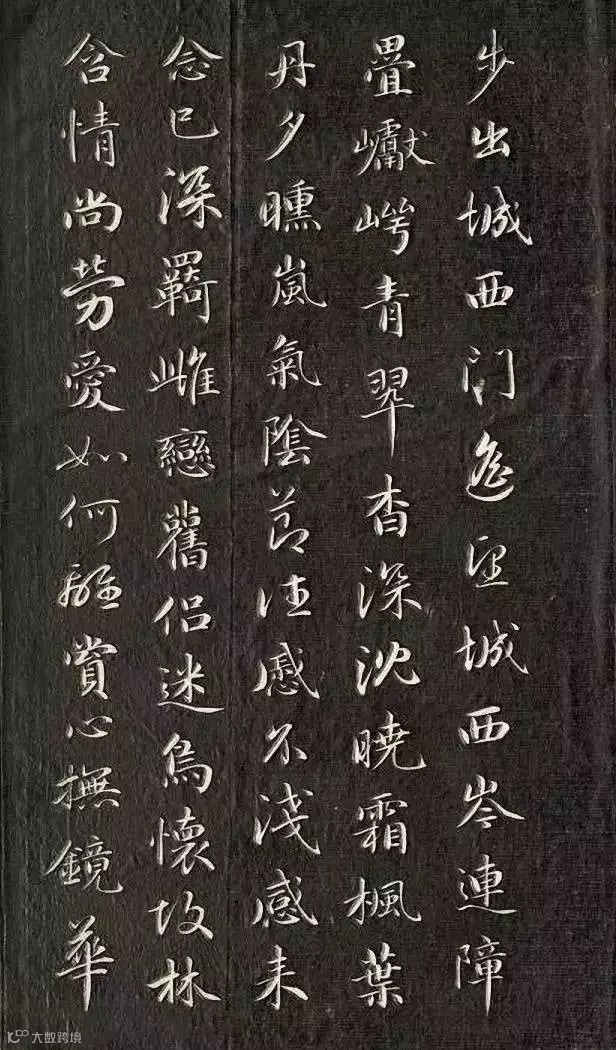 步出城西门遥望城西岑連障
疊巘崿青翠杳深沈曉霜楓葉
丹夕曛嵐氣陰節往慼不淺感来
念已深羈雌戀舊侣迷鳥懷故林
含情尚劳愛如何離賞心撫鏡華
大数跨境